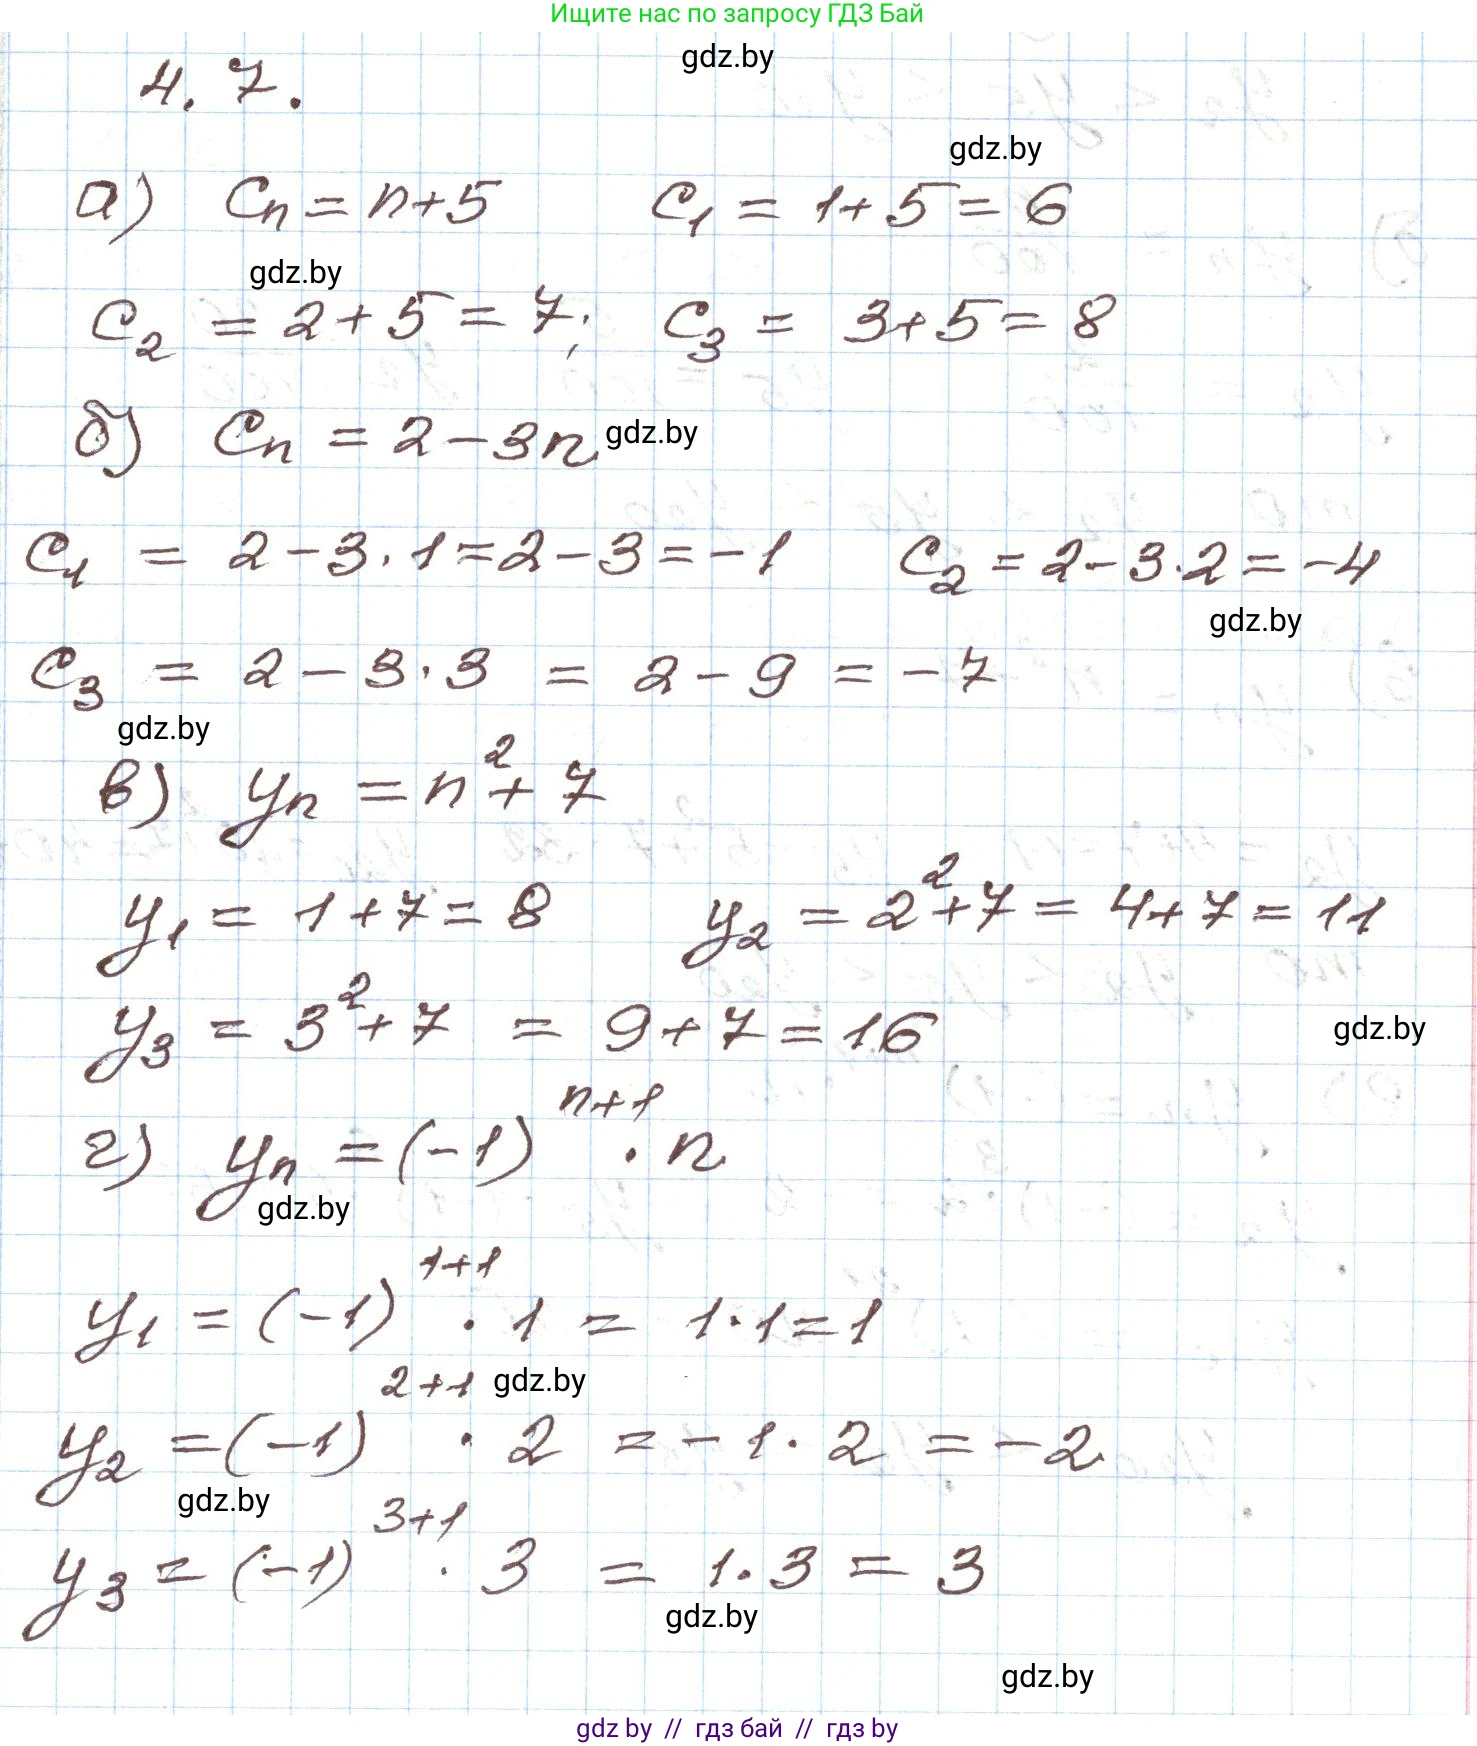 Ищите нас по запросу ГДЗ Бай
gdz.by
4.7.
gdz.by
а) Cn = n+5 C1 = 1+5 = 6
gdz.by
C2 = 2+5 = 7; C3 = 3+5 = 8
б) Cn = 2-3n gdz.by
C1 = 2-3·1 = 2-3 = -1 C2 = 2-3·2 = -4
gdz.by
C3 = 2-3·3 = 2-9 = -7
gdz.by
в) yn = n²+7
y1 = 1+7 = 8 y2 = 2²+7 = 4+7 = 11
y3 = 3²+7 = 9+7 = 16
gdz.by
г) yn = (-1)^{n+1} · n
gdz.by
y1 = (-1)^{1+1} · 1 = 1·1 = 1
gdz.by
y2 = (-1)^{2+1} · 2 = -1·2 = -2
gdz.by
y3 = (-1)^{3+1} · 3 = 1·3 = 3
gdz.by
gdz.by
gdz by // гдз бай // гдз by